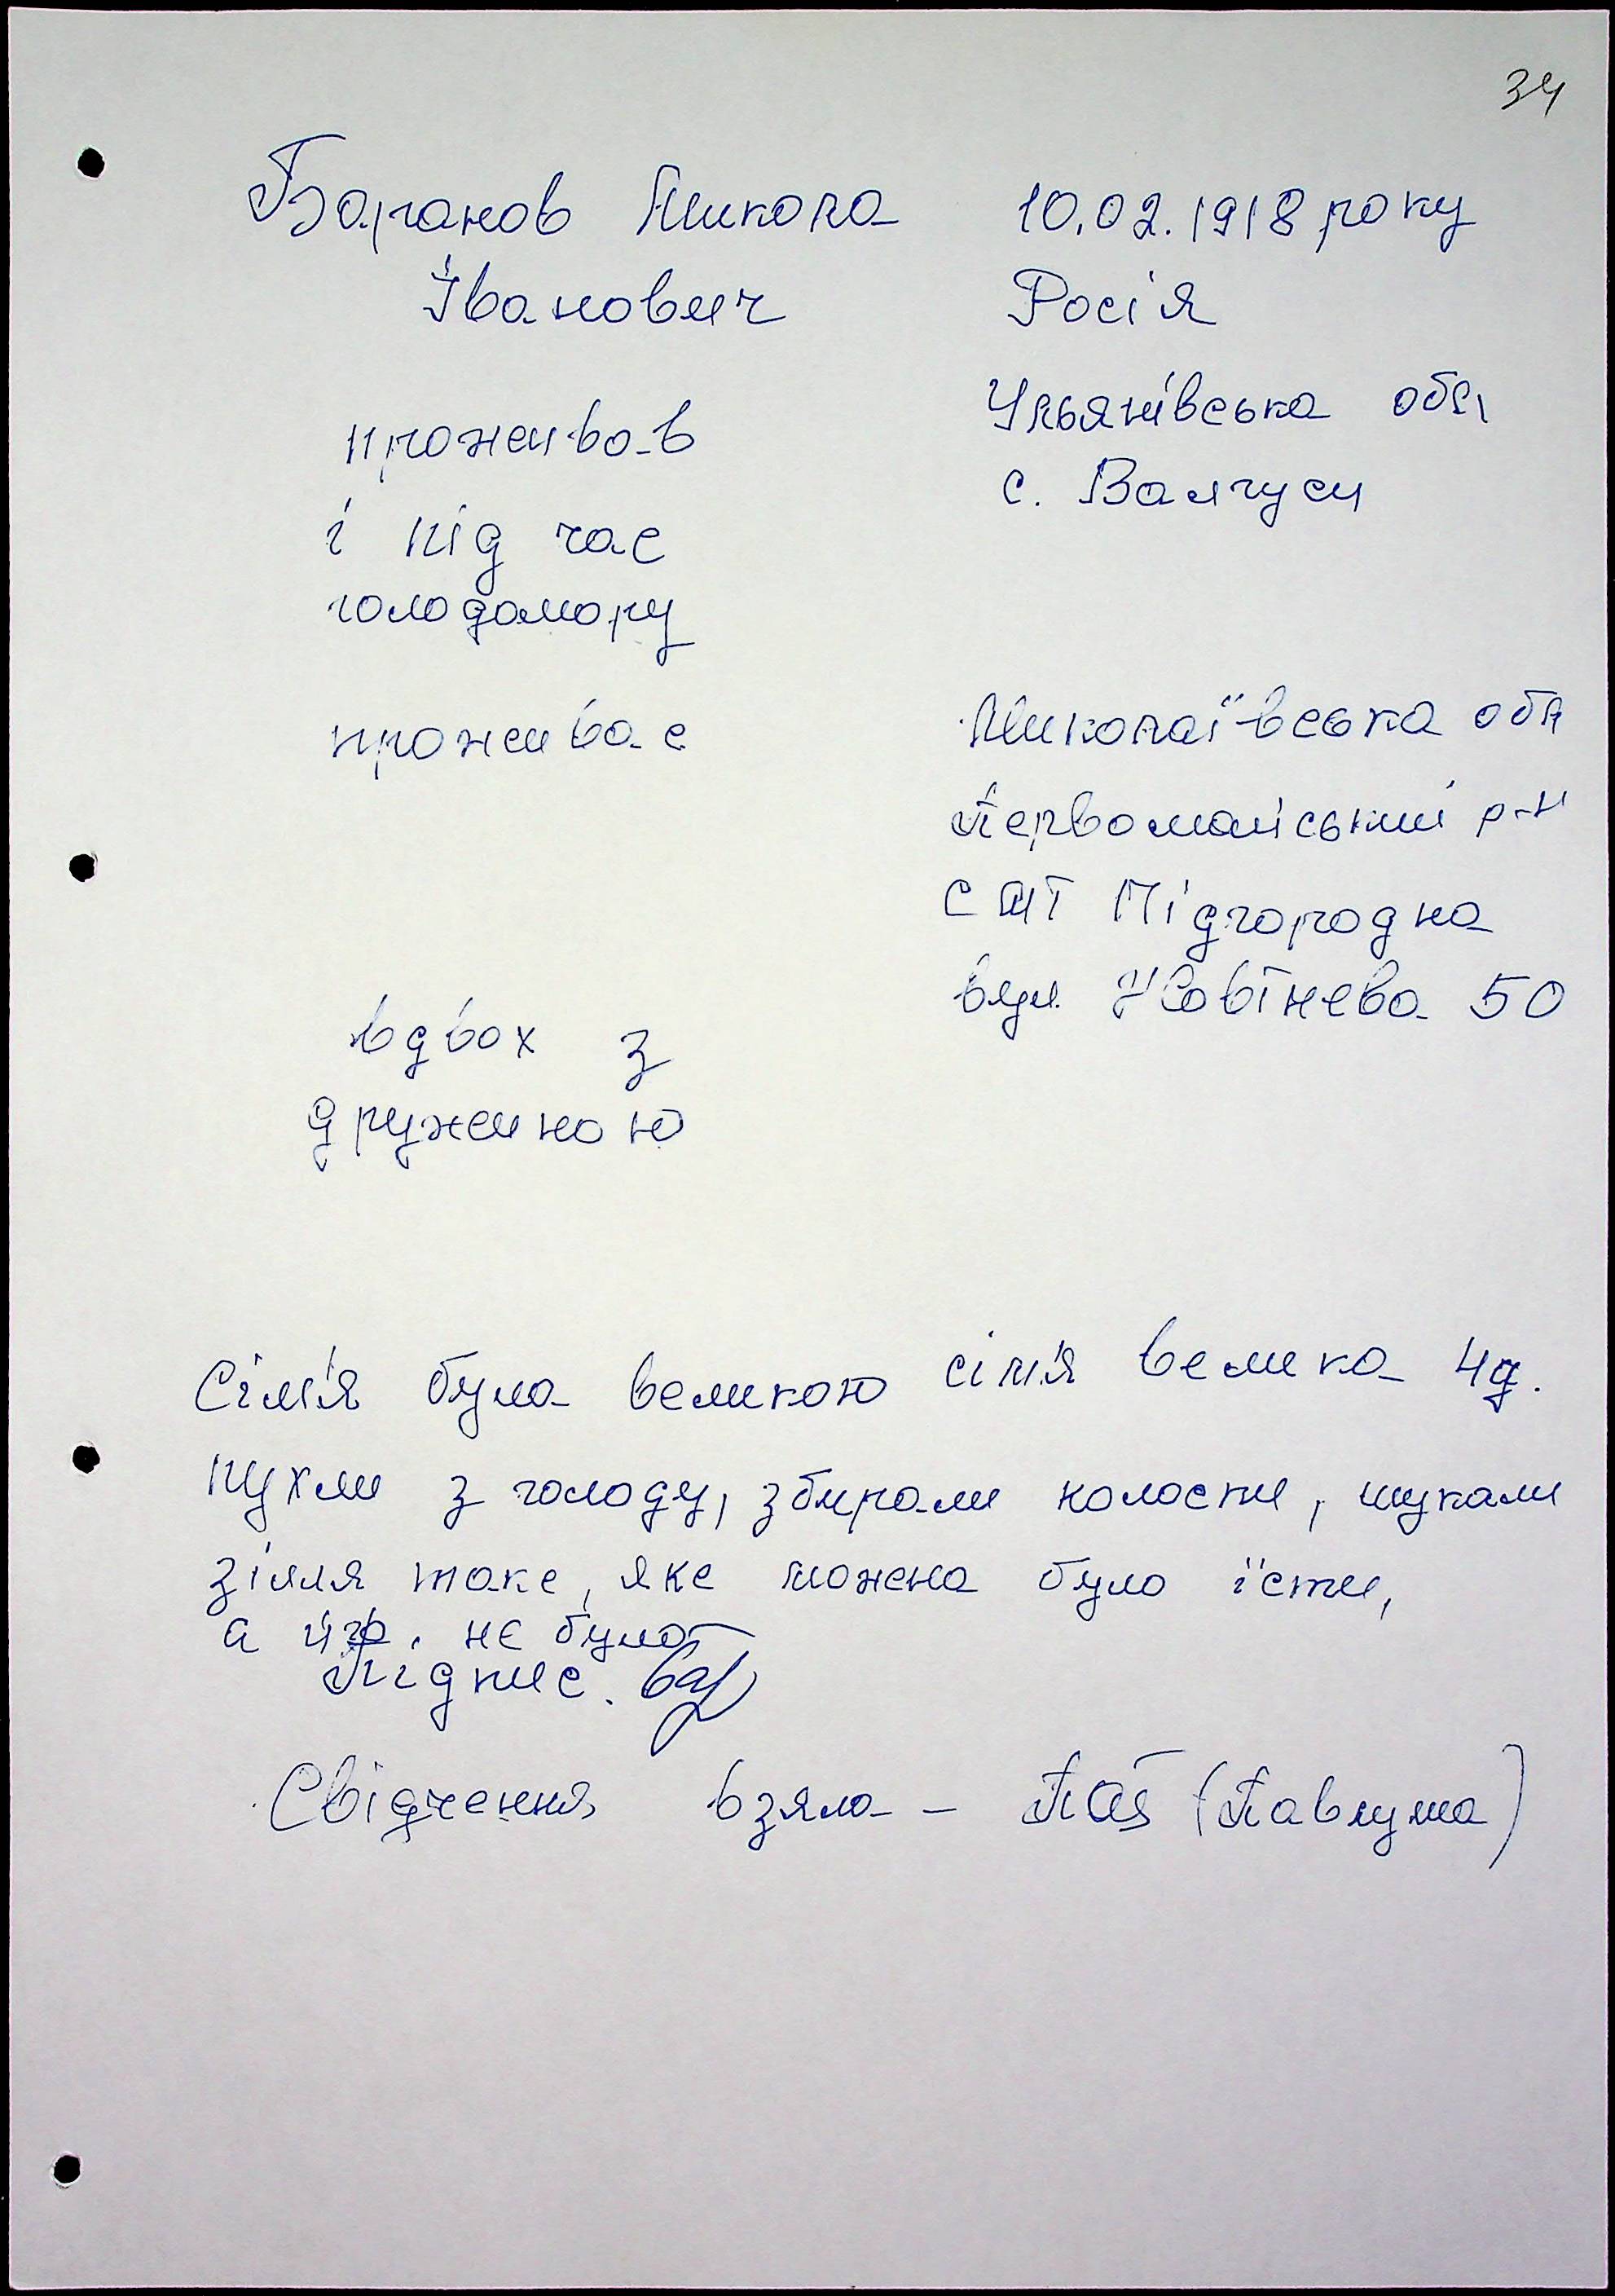 34
Барганов Микола 10.02.1918 року
Іванович Росія
Ульянівська обл,
проживав
с. Валгуси
і під час
голодомору
проживає Миколаївська обл
Первомайський р-н
смт Підгородна
вул. Жовтнева 50
вдвох з
дружиною
Сім'я була великою сім'я велика 4д.
пухли з голоду, збирали колоски, шукали
зілля таке, яке можна було їсти,
а його не було
Підпис.
Свідчення взяла – (Павлуша)